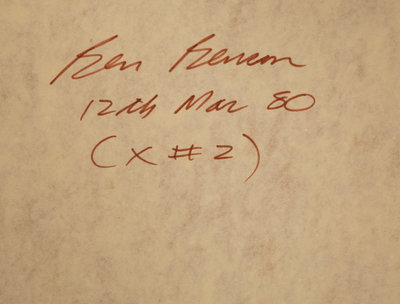 Ken Kenison
12th Mar 80
(X #2)